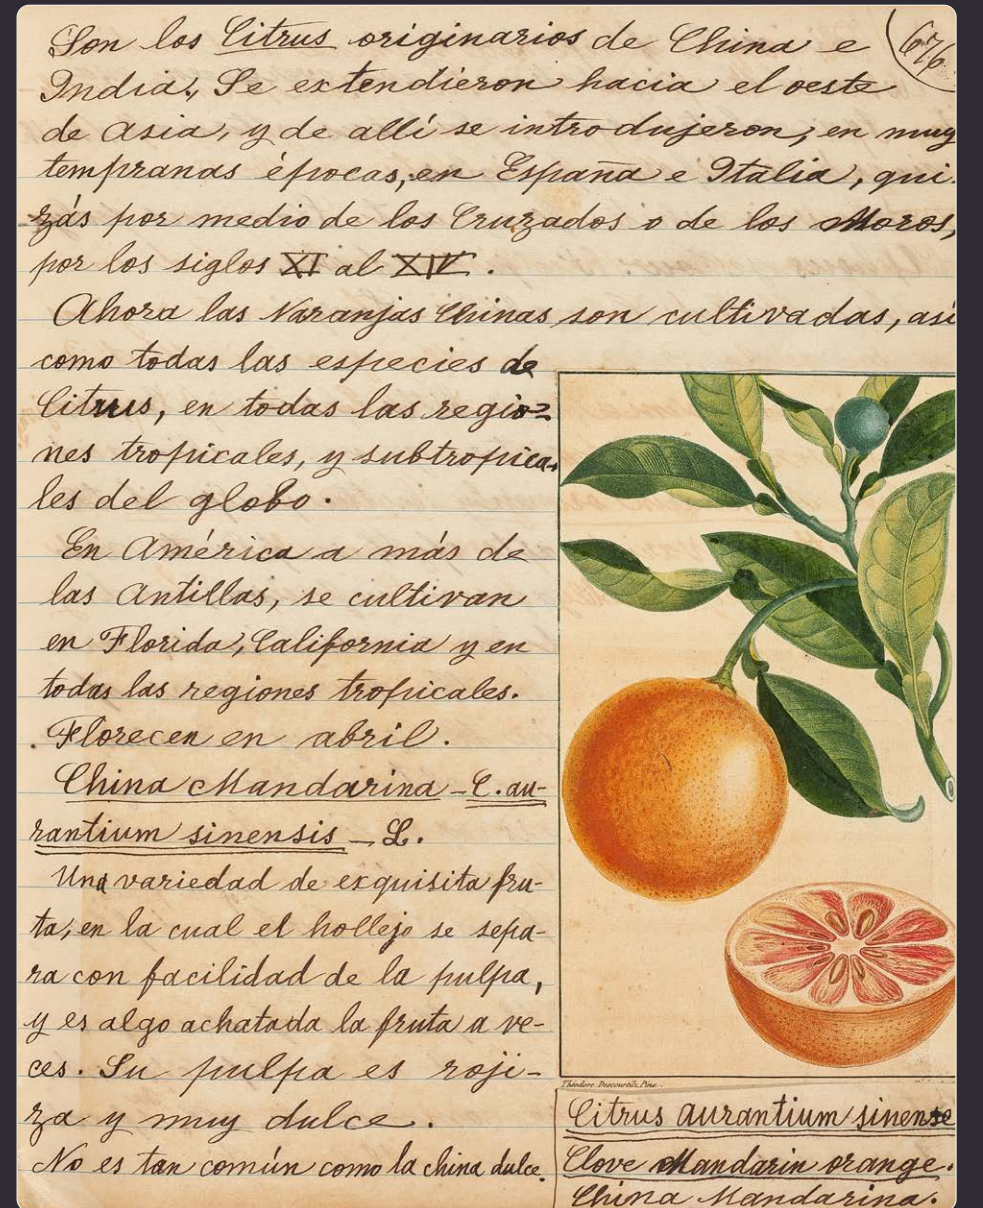 676
Son los Citrus originarios de China e
India. Se extendieron hacia el oeste
de Asia, y de allí se introdujeron, en muy
tempranas épocas, en España e Italia, qui-
zás por medio de los Cruzados o de los Moros,
por los siglos XI al XIV.
Ahora las Naranjas Chinas son cultivadas, así
como todas las especies de
Citrus, en todas las regio=
nes tropicales, y subtropica-
les del globo.
En América a más de
las Antillas, se cultivan
en Florida, California y en
todas las regiones tropicales.
Florecen en abril.
China Mandarina - C. au-
rantium sinensis - L.
Una variedad de exquisita fru-
ta, en la cual el hollejo se sepa-
ra con facilidad de la pulpa,
y es algo achatada la fruta a ve-
ces. Su pulpa es roji-
za y muy dulce.
No es tan común como la china dulce.
Théodore Descourtilz Pinx.
Citrus aurantium sinense
Clove Mandarin orange.
China Mandarina.